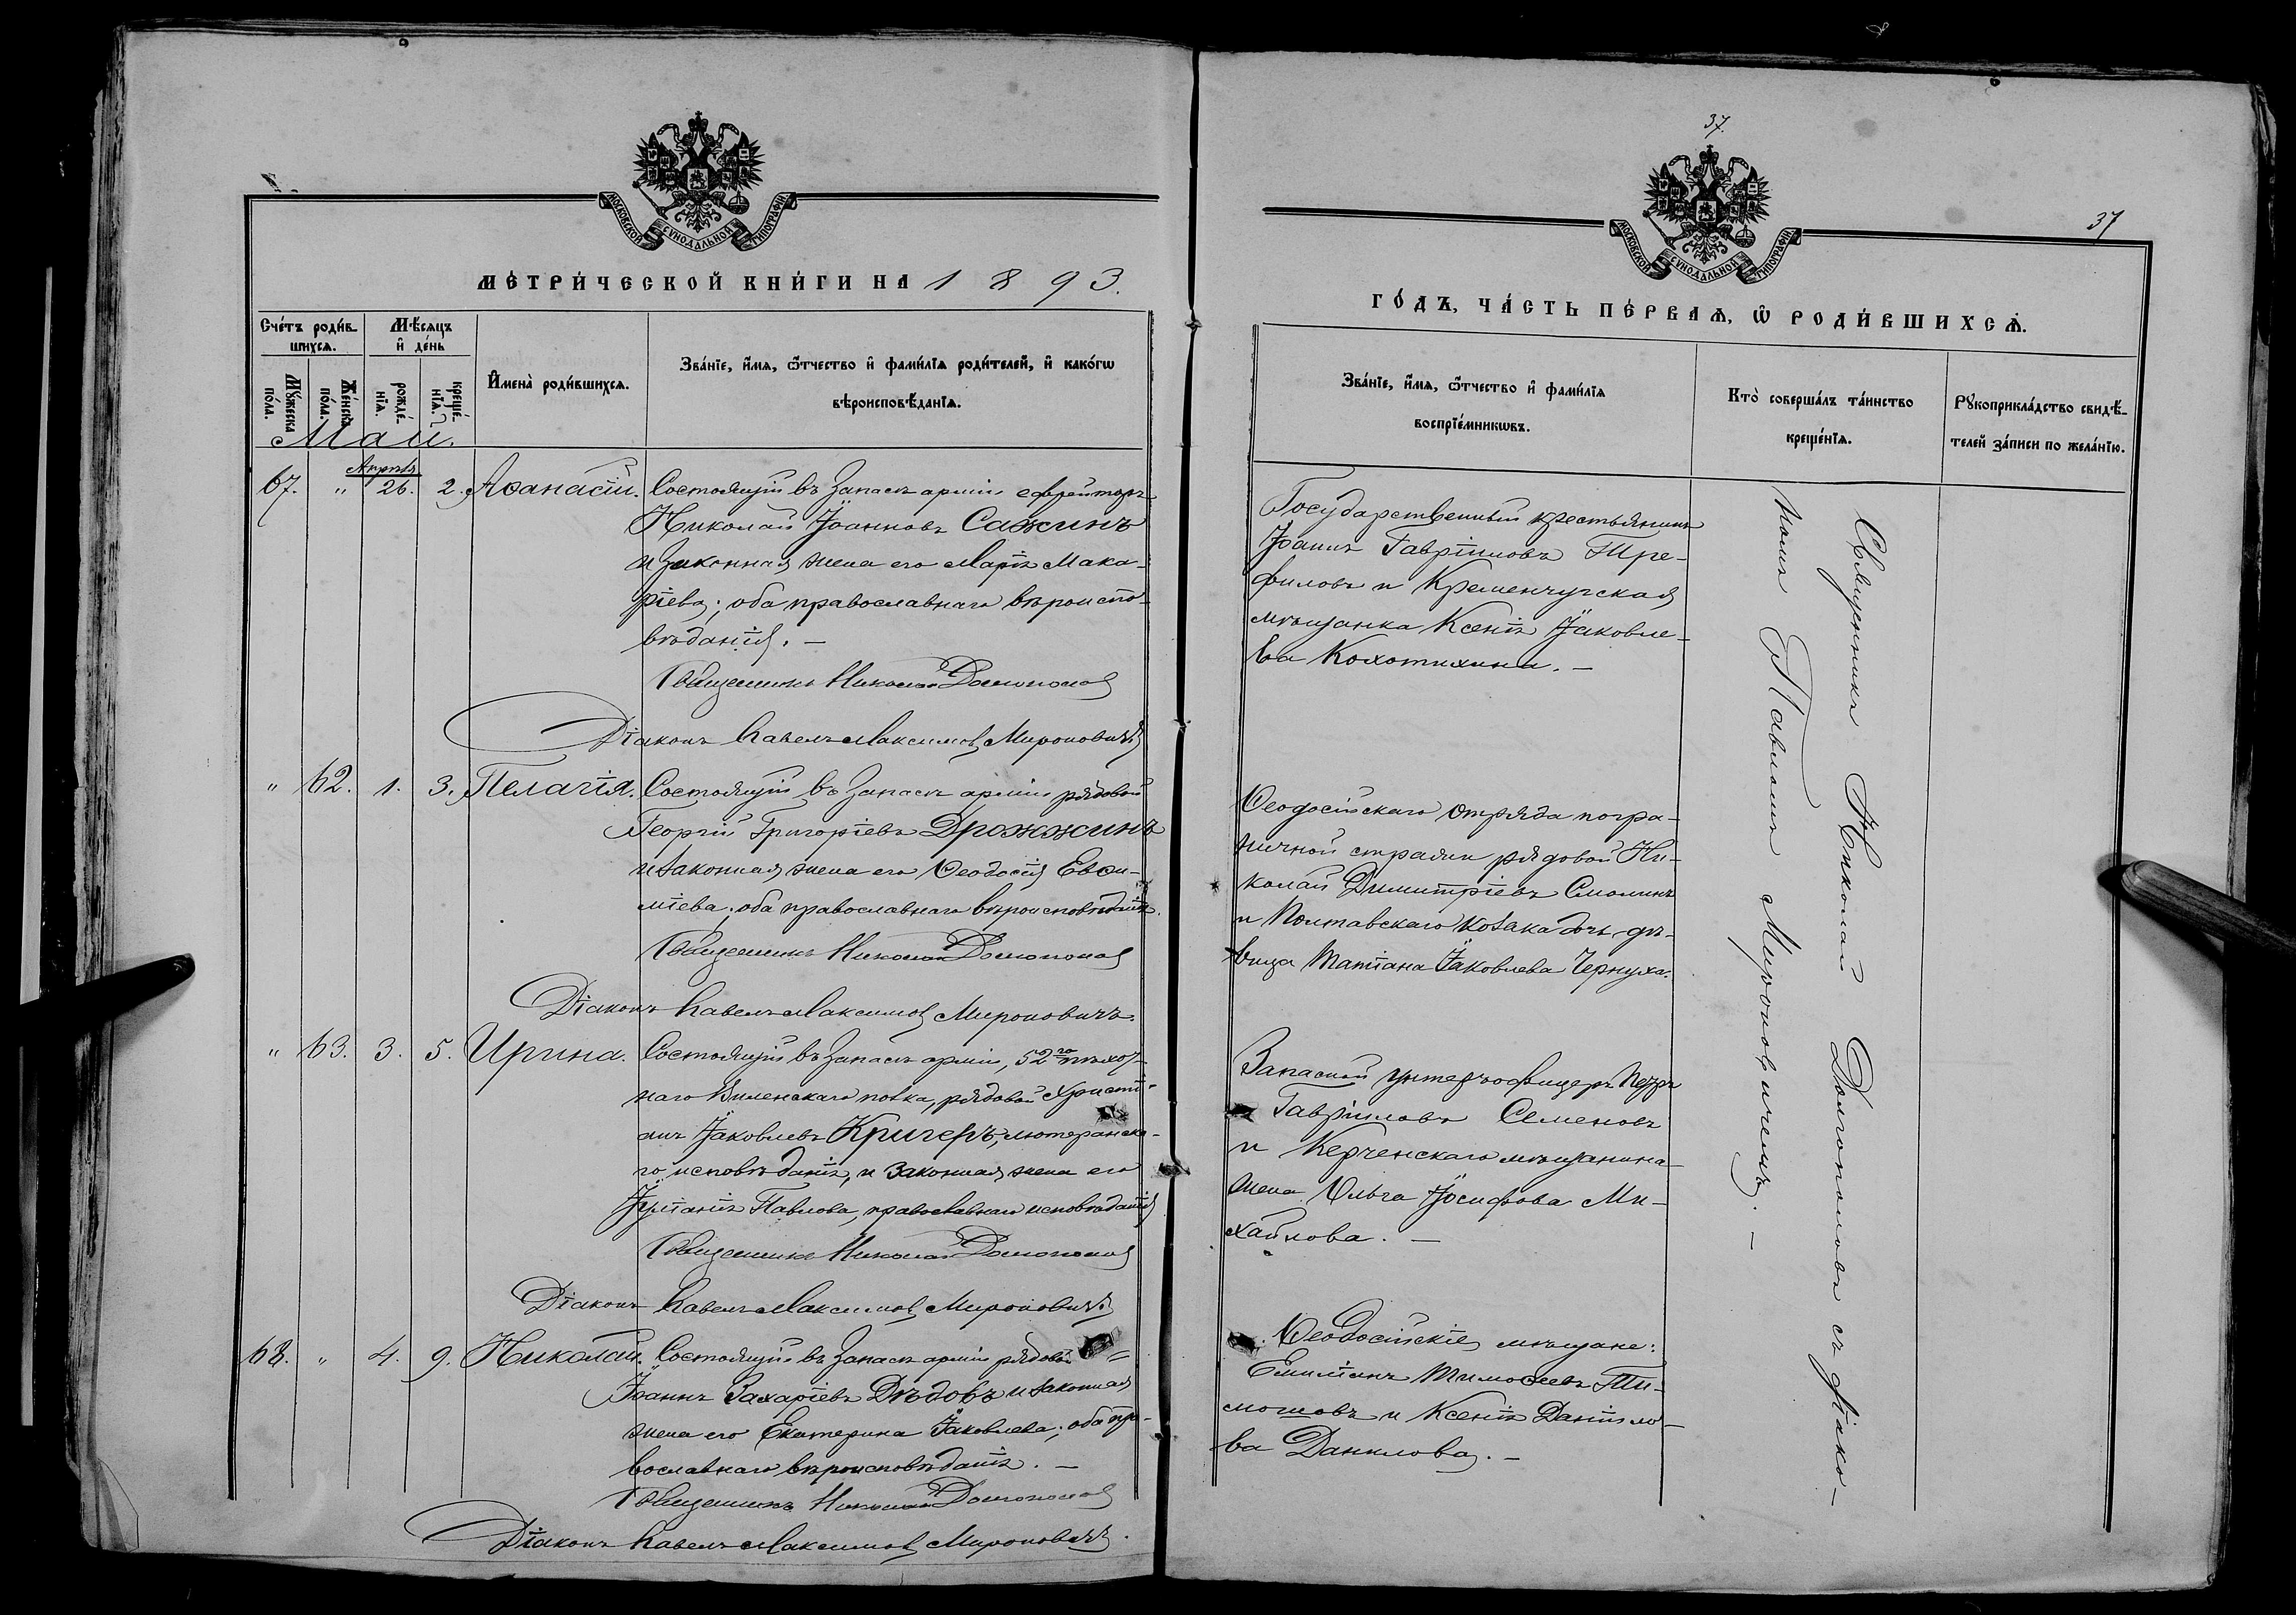 МОСКОВСКОЙ СѴНОДАЛЬНОЙ ТИПОГРАФІИ
МЕТРИ́ЧЕСКОЙ КНИ́ГИ НА 1893.
Сче́тъ роди́в-
шихся.
Мѣ́сяцъ
и҆ де́нь
Мꙋ́жеска
по́ла.
Же́нска
по́ла.
рожде́-
нїѧ.
креще́-
нїѧ.
И҆мена̀ роди́вшихсѧ.
Зва́нїе, и҆́мѧ, ѻ҆́тчество и҆ фами́лїѧ роди́телей, и҆ како́гѡ
вѣроисповѣ́данїѧ.
Май.
Апрѣль
67. " 26. 2. Аѳанасій. Состоящій въ запасѣ арміи ефрейторъ
Николай Іоанновъ Сажинъ
и законная жена его Марія Мака-
ріева; оба православнаго вѣроиспо-
вѣданія. —
Священникъ Николай Долгополов
Діаконъ Павелъ Максимов Мироновичъ
" 62. 1. 3. Пелагія. Состоящій въ запасѣ арміи рядовой
Георгій Григоріевъ Дрожжинъ
и законная жена его Ѳеодосія Евѳи-
міева; оба православнаго вѣроисповѣданія.
Священникъ Николай Долгополов
Діаконъ Павелъ Максимов Мироновичъ.
" 63. 3. 5. Ирина. Состоящій въ запасѣ арміи, 52го пѣхот-
наго Виленскаго полка, рядовой Христі-
анъ Іаковлевъ Кригеръ, лютеранска-
го исповѣданія, и законная жена его
Іуліанія Павлова, православнаго исповѣданія
Священникъ Николай Долгополов
Діаконъ Павелъ Максимов Мироновичъ
68. " 4. 9. Николай. Состоящій въ запасѣ арміи рядовой
Іоаннъ Захаріевъ Дѣдовъ и законная
жена его Екатерина Іаковлева; оба пра-
вославнаго вѣроисповѣданія. —
Священникъ Николай Долгополов
Діаконъ Павелъ Максимов Мироновичъ.
37.
37
МОСКОВСКОЙ СѴНОДАЛЬНОЙ ТИПОГРАФІИ
ГО́ДЪ, ЧА́СТЬ ПЕ́РВАѦ, Ѽ РОДИ́ВШИХСѦ.
Зва́нїе, и҆́мѧ, ѻ҆́тчество и҆ фами́лїѧ
воспрїе́мникѡвъ.
Кто̀ соверша́лъ та́инство
креще́нїѧ.
Рꙋкоприкла́дство свидѣ́-
телей за́писи по жела́нїю.
Государственный крестьянинъ
Іоаннъ Гавріиловъ Тре-
филовъ и Кременчугская
мѣщанка Ксенія Іаковле-
ва Кохотихина. —
Ѳеодосійскаго отряда погра-
ничной стражи рядовой Ни-
колай Димитріевъ Смолинъ
и Полтавскаго козака дочь дѣ-
вица Татіана Іаковлева Чернуха.
Запасной унтеръ-офицеръ Петръ
Гавріиловъ Семеновъ
и Керченскаго мѣщанина
жена Ольга Іосифова Ми-
хайлова. —
Ѳеодосійскіе мѣщане:
Емиліанъ Тимоѳеевъ Ти-
мошовъ и Ксенія Даніило-
ва Данилова. —
Священникъ Николай Долгополовъ съ діако-
номъ Павломъ Мироновичемъ. —